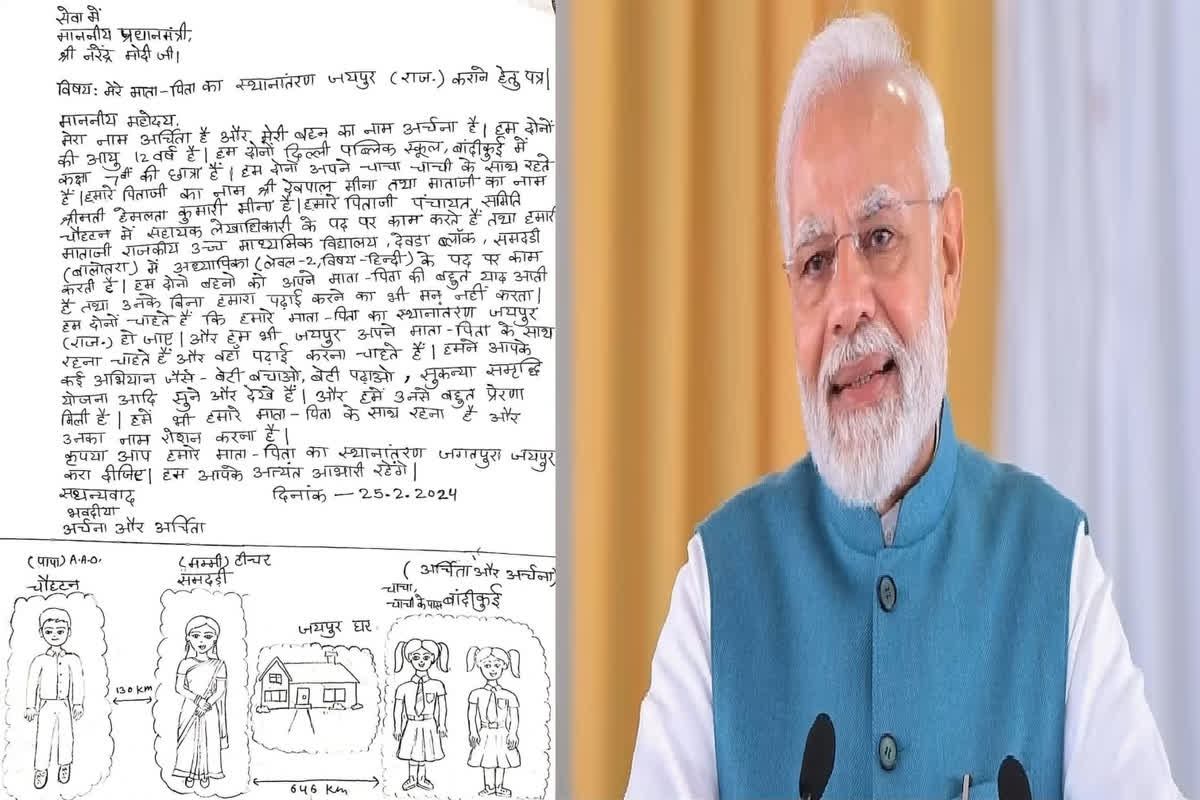 सेवा में
माननीय प्रधानमंत्री,
श्री नरेंद्र मोदी जी।
विषय: मेरे माता-पिता का स्थानांतरण जयपुर (राज.) कराने हेतु पत्र।
माननीय महोदय,
मेरा नाम अर्चिता है और मेरी बहन का नाम अर्चना है। हम दोनों
की आयु 12 वर्ष है। हम दोनों दिल्ली पब्लिक स्कूल, बांदीकुई में
कक्षा 7वीं की छात्रा हैं। हम दोनों अपने चाचा चाची के साथ रहते
हैं। हमारे पिताजी का नाम श्री देवपाल मीना तथा माताजी का नाम
श्रीमती हेमलता कुमारी मीना है। हमारे पिताजी पंचायत समिति
चौहटन में सहायक लेखाधिकारी के पद पर काम करते हैं तथा हमारी
माताजी राजकीय उच्च माध्यमिक विद्यालय, देवडा ब्लॉक, समदडी
(बालोतरा) में अध्यापिका (लेवल-2, विषय-हिन्दी) के पद पर काम
करती हैं। हम दोनो बहनो को अपने माता-पिता की बहुत याद आती
है तथा उनके बिना हमारा पढ़ाई करने का भी मन नहीं करता।
हम दोनों चाहते हैं कि हमारे माता-पिता का स्थानांतरण जयपुर
(राज.) हो जाए। और हम भी जयपुर अपने माता-पिता के साथ
रहना चाहते हैं और वहाँ पढ़ाई करना चाहते हैं। हमने आपके
कई अभियान जैसे- बेटी बचाओ, बेटी पढ़ाओ, सुकन्या समृद्धि
योजना आदि सुने और देखे हैं। और हमें उनसे बहुत प्रेरणा
मिली है। हमें भी हमारे माता-पिता के साथ रहना है और
उनका नाम रोशन करना है।
कृपया आप हमारे माता-पिता का स्थानांतरण जगतपुरा जयपुर
करा दीजिए। हम आपके अत्यंत आभारी रहेंगे।
सधन्यवाद दिनांक — 25.2.2024
भवदीया
अर्चना और अर्चिता
(पापा) A.A.O.
चौहटन
(मम्मी) टीचर
समदड़ी
(अर्चिता और अर्चना)
चाचा,
चाची के पास बांदीकुई
जयपुर घर
130 KM
646 KM